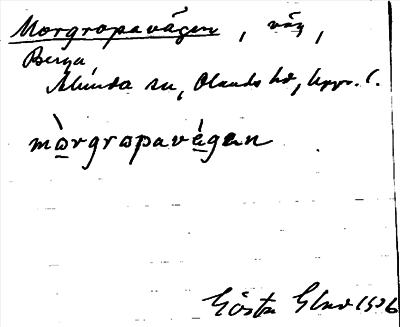 Morgropavägen, väg,
Berga
Alunda sn, Olands hd, Upps. l.
mòrgropavágen
Gösta Glad 1936